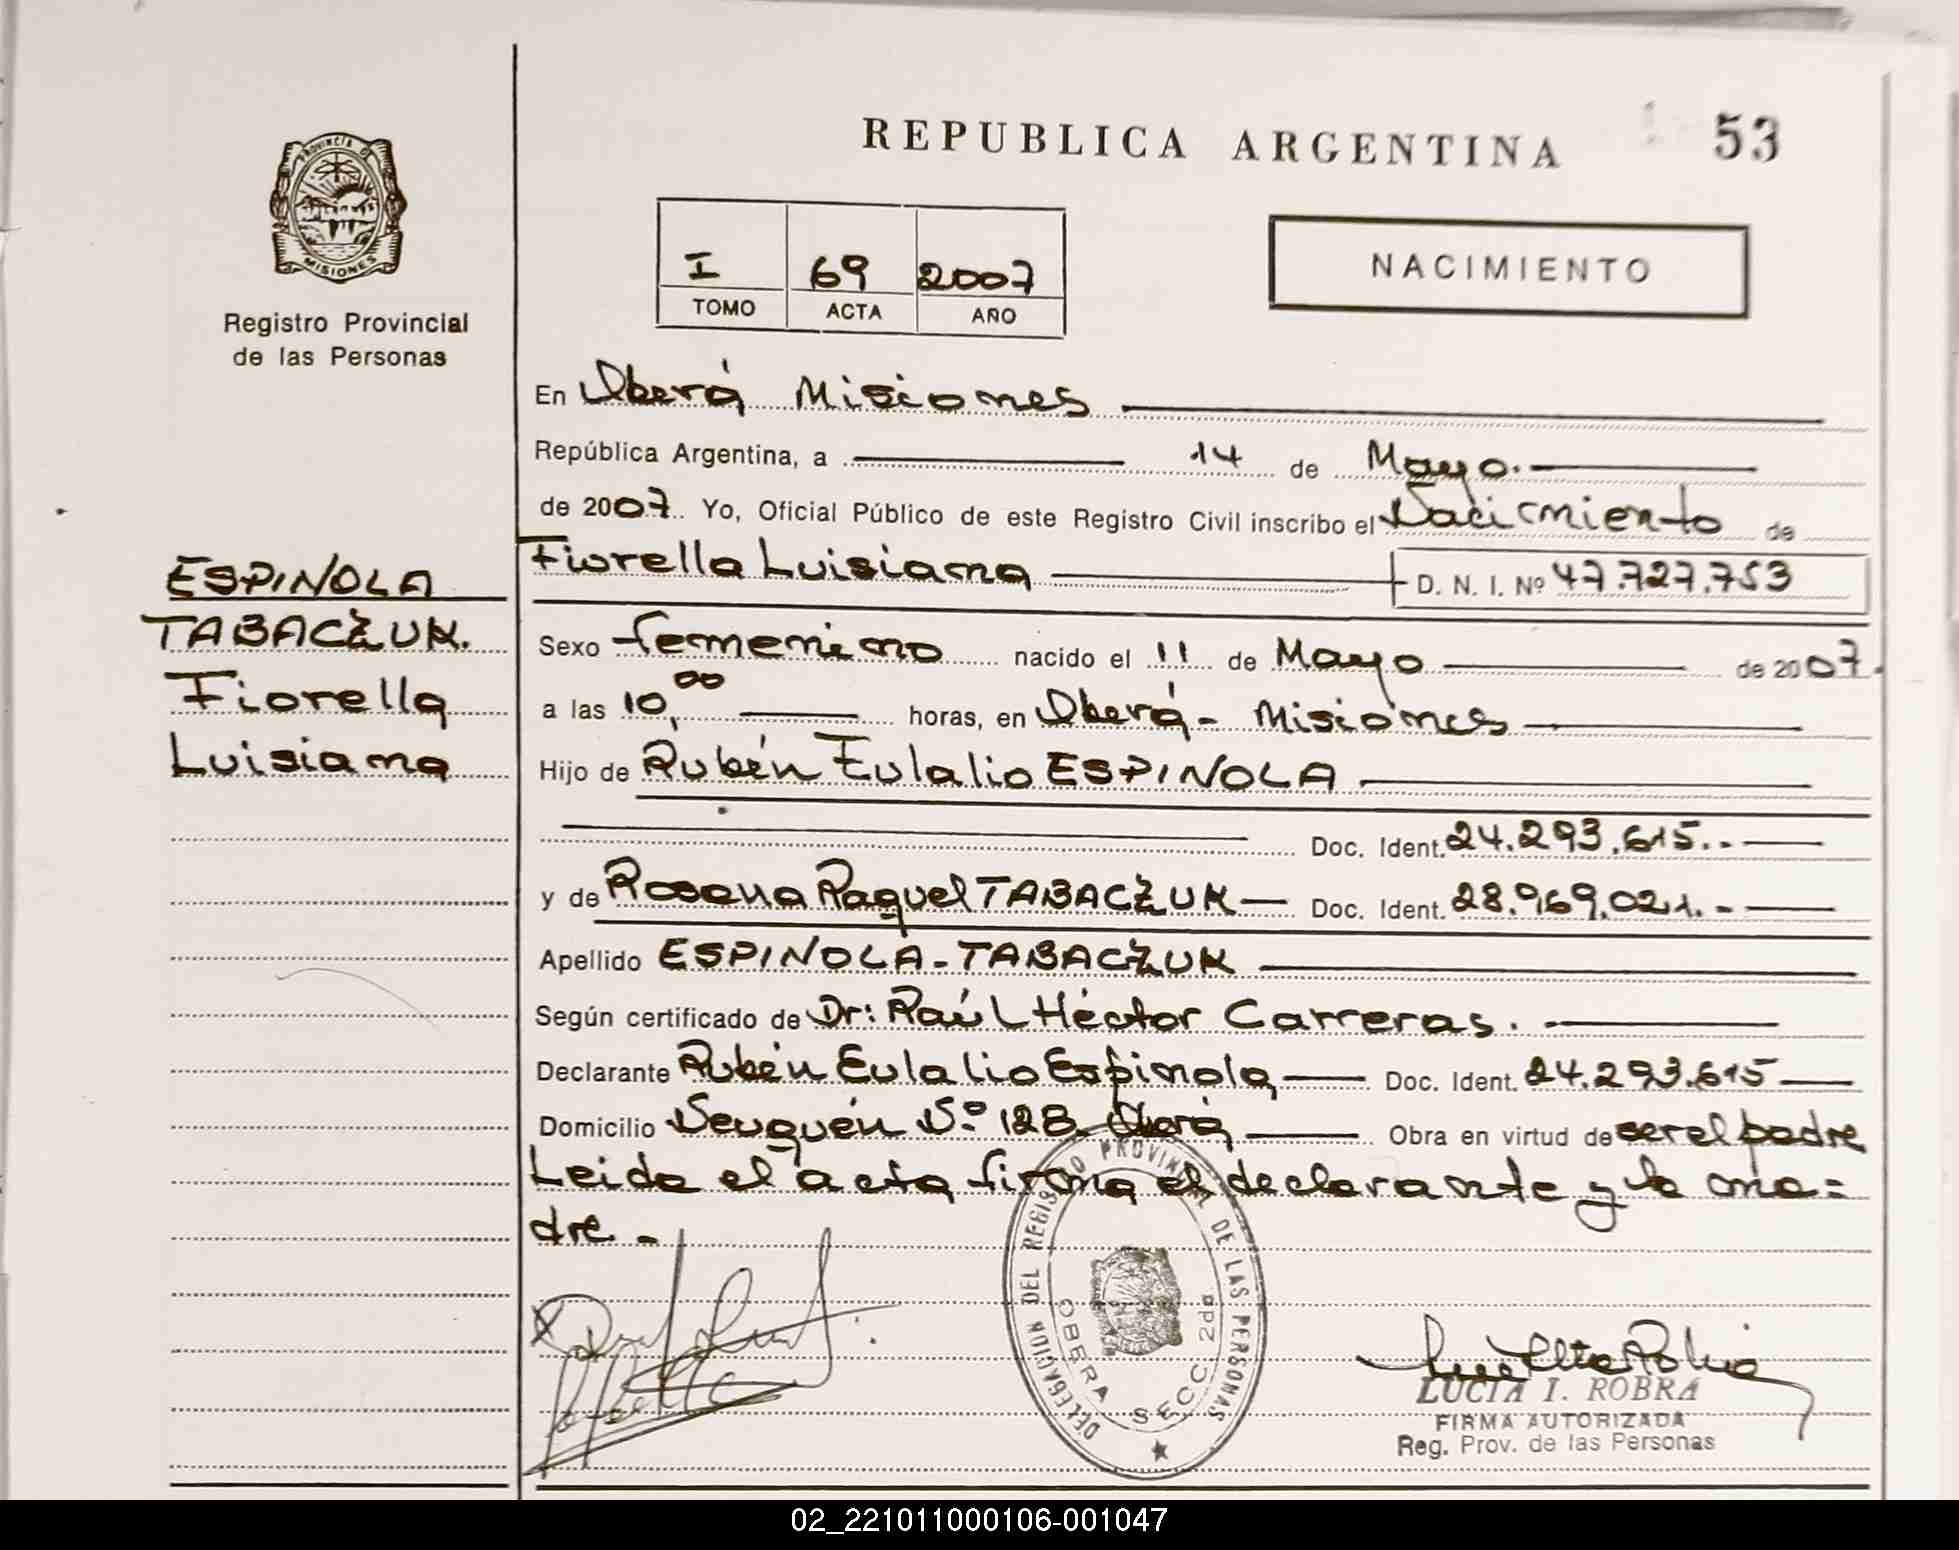 REPUBLICA ARGENTINA
53
PROVINCIA DE MISIONES
Registro Provincial
de las Personas
I 69 2007
TOMO ACTA AÑO
NACIMIENTO
En Oberá Misiones
República Argentina, a 14 de Mayo.
de 2007. Yo, Oficial Público de este Registro Civil inscribo el Nacimiento de
Fiorella Luisiana D. N. I. Nº 47.727.753
ESPINOLA
TABACZUK.
Fiorella
Luisiana
Sexo femenino nacido el 11 de Mayo de 2007.
a las 10,00 horas, en Oberá - Misiones
Hijo de Rubén Eulalio ESPINOLA
Doc. Ident. 24.293.615.-
y de Rosana Raquel TABACZUK Doc. Ident. 28.969.021.-
Apellido ESPINOLA-TABACZUK
Según certificado de Dr: Raúl Héctor Carreras.
Declarante Rubén Eulalio Espinola Doc. Ident. 24.293.615
Domicilio Neuquén Nº 128 Oberá Obra en virtud de ser el padre
Leida el acta firma el declarante y la ma=
dre.-
DELEGACION DEL REGISTRO PROVINCIAL DE LAS PERSONAS
OBERA SECC 2da
LUCIA I. ROBRA
FIRMA AUTORIZADA
Reg. Prov. de las Personas
02_221011000106-001047